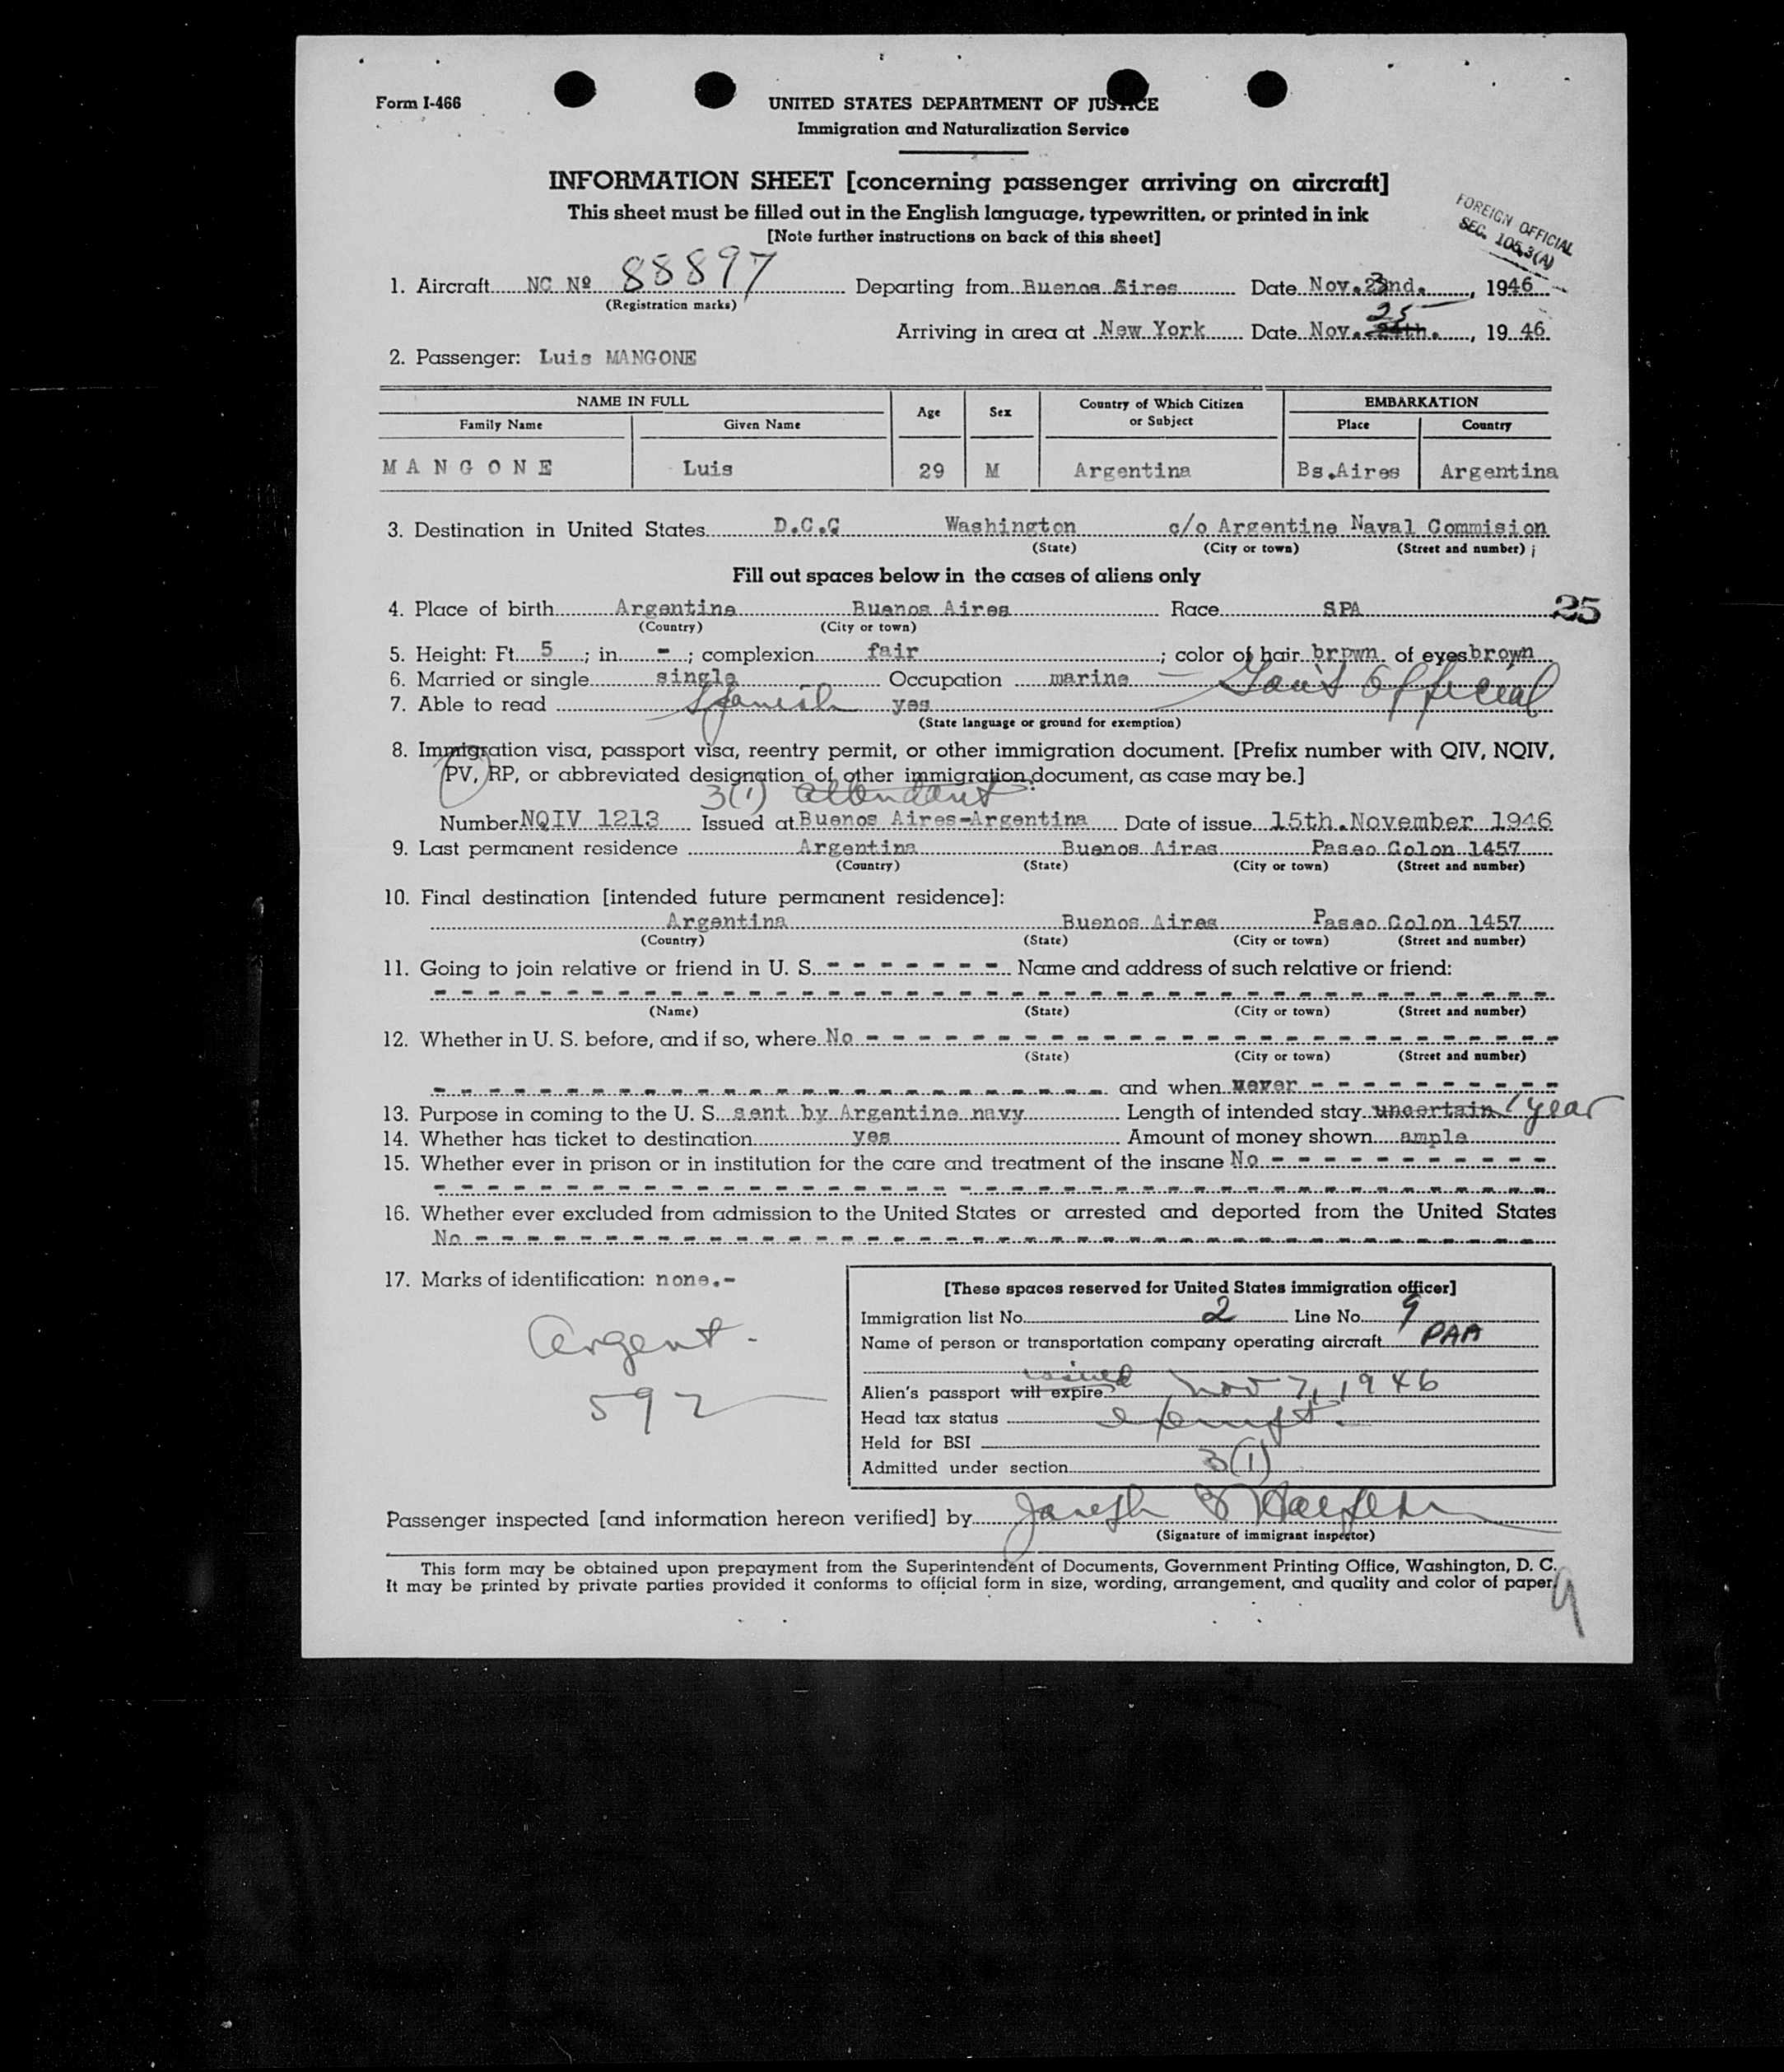 Form I-466
UNITED STATES DEPARTMENT OF JUSTICE
Immigration and Naturalization Service
INFORMATION SHEET [concerning passenger arriving on aircraft]
This sheet must be filled out in the English language, typewritten, or printed in ink
[Note further instructions on back of this sheet]
FOREIGN OFFICIAL
SEC. 105.3(A)
1. Aircraft NC Nº 88897 Departing from Buenos Aires Date Nov. 23nd. , 1946
(Registration marks)
25
Arriving in area at New York Date Nov. 24th. , 19 46
2. Passenger: Luis MANGONE
NAME IN FULL Age Sex Country of Which Citizen or Subject EMBARKATION
Family Name Given Name Place Country
MANGONE Luis 29 M Argentina Bs.Aires Argentina
3. Destination in United States D.C.C Washington c/o Argentine Naval Commision
(State) (City or town) (Street and number) ;
Fill out spaces below in the cases of aliens only
4. Place of birth Argentina Buenos Aires Race SPA 25
(Country) (City or town)
5. Height: Ft. 5 ; in. - ; complexion fair ; color of hair brown of eyes brown
6. Married or single single Occupation marine - Gov't Official
7. Able to read Spanish yes
(State language or ground for exemption)
8. Immigration visa, passport visa, reentry permit, or other immigration document. [Prefix number with QIV, NQIV,
PV, RP, or abbreviated designation of other immigration document, as case may be.]
3(1) attendant
Number NQIV 1213 Issued at Buenos Aires-Argentina Date of issue 15th.November 1946
9. Last permanent residence Argentina Buenos Aires Paseo Colon 1457
(Country) (State) (City or town) (Street and number)
10. Final destination [intended future permanent residence]:
Argentina Buenos Aires Paseo Colon 1457
(Country) (State) (City or town) (Street and number)
11. Going to join relative or friend in U. S. - - - - - - - Name and address of such relative or friend:
(Name) (State) (City or town) (Street and number)
12. Whether in U. S. before, and if so, where No - - - - - - -
(State) (City or town) (Street and number)
and when never - - - - - - - - - -
13. Purpose in coming to the U. S. sent by Argentine navy Length of intended stay uncertain 1 year
14. Whether has ticket to destination yes Amount of money shown ample
15. Whether ever in prison or in institution for the care and treatment of the insane No - - - - - - - - - - -
16. Whether ever excluded from admission to the United States or arrested and deported from the United States
No - - - - - - -
17. Marks of identification: none.-
Argent. -
592
[These spaces reserved for United States immigration officer]
Immigration list No. 2 Line No. 9
Name of person or transportation company operating aircraft PAA
issued
Alien's passport will expire Nov 7, 1946
Head tax status exempt.
Held for BSI
Admitted under section 3(1)
Passenger inspected [and information hereon verified] by Joseph
(Signature of immigrant inspector)
This form may be obtained upon prepayment from the Superintendent of Documents, Government Printing Office, Washington, D. C.
It may be printed by private parties provided it conforms to official form in size, wording, arrangement, and quality and color of paper.
9